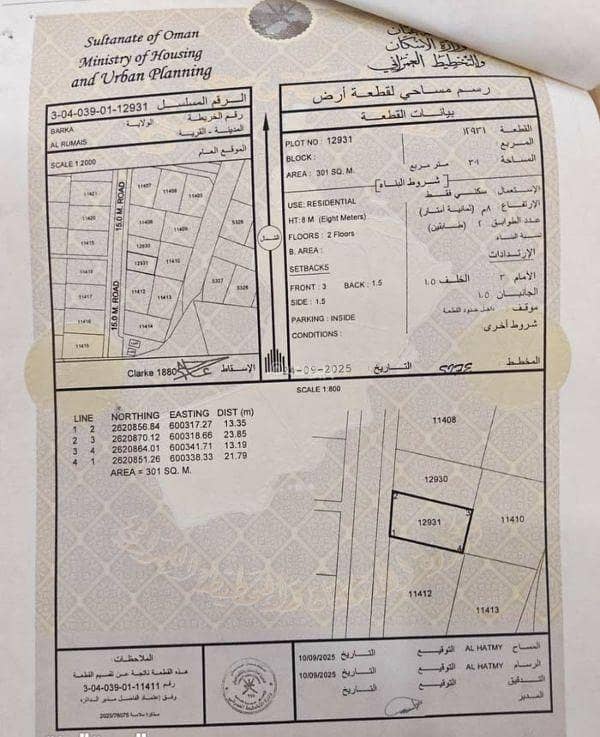 Sultanate of Oman
Ministry of Housing
and Urban Planning
وزارة الإسكان
والتخطيط العمراني
الرقم المسلسل 3-04-039-01-12931
رقم الخريطة
الولاية BARKA
المدينة - القرية
AL RUMAIS
الموقع العام
SCALE 1:2000
11421
11407
11406
11405
15.0 M. ROAD
11420
11408
5328
11415
12930
12931
11410
5307
5326
11417
11412
11413
15.0 M. ROAD
11416
11414
11415
Clarke 1880
الإسقاط
شمال
رسم مساحي لقطعة أرض
بيانات القطعة
PLOT NO : 12931
القطعة ١٢٩٣١
BLOCK :
المربع
AREA : 301 SQ. M.
المساحة ٣٠١ متر مربع
شروط البناء
USE: RESIDENTIAL
الإستعمال سكني فقط
HT: 8 M (Eight Meters)
الإرتفاع ٨م (ثمانية أمتار)
FLOORS : 2 Floors
عدد الطوابق ٢ (طابقين)
B. AREA :
نسبة البناء
SETBACKS
الإرتدادات
FRONT : 3 BACK : 1.5
الأمام ٣ الخلف ١.٥
SIDE : 1.5
الجانبان ١.٥
PARKING : INSIDE
موقف داخل حدود القطعة
CONDITIONS :
شروط أخرى
المخطط
التاريخ 24-09-2025
SCALE 1:800
LINE NORTHING EASTING DIST (m)
1 2 2620856.84 600317.27 13.35
2 3 2620870.12 600318.66 23.85
3 4 2620864.01 600341.71 13.19
4 1 2620851.26 600338.33 21.79
AREA = 301 SQ. M.
11408
12930
2
3
12931
11410
1
4
11412
11413
الملاحظات:
هذه القطعة ناتجة عن تقسيم القطعة
رقم 3-04-039-01-11411
وفق إعتماد الفاضل مدير الدائرة
2025/76075
المساح AL HATMY التوقيع التاريخ 10/09/2025
الرسام AL HATMY التوقيع التاريخ 10/09/2025
التدقيق التوقيع التاريخ
المدير